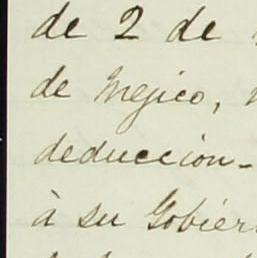 de 2 de
de Mejico,
deduccion-
à su Gobier